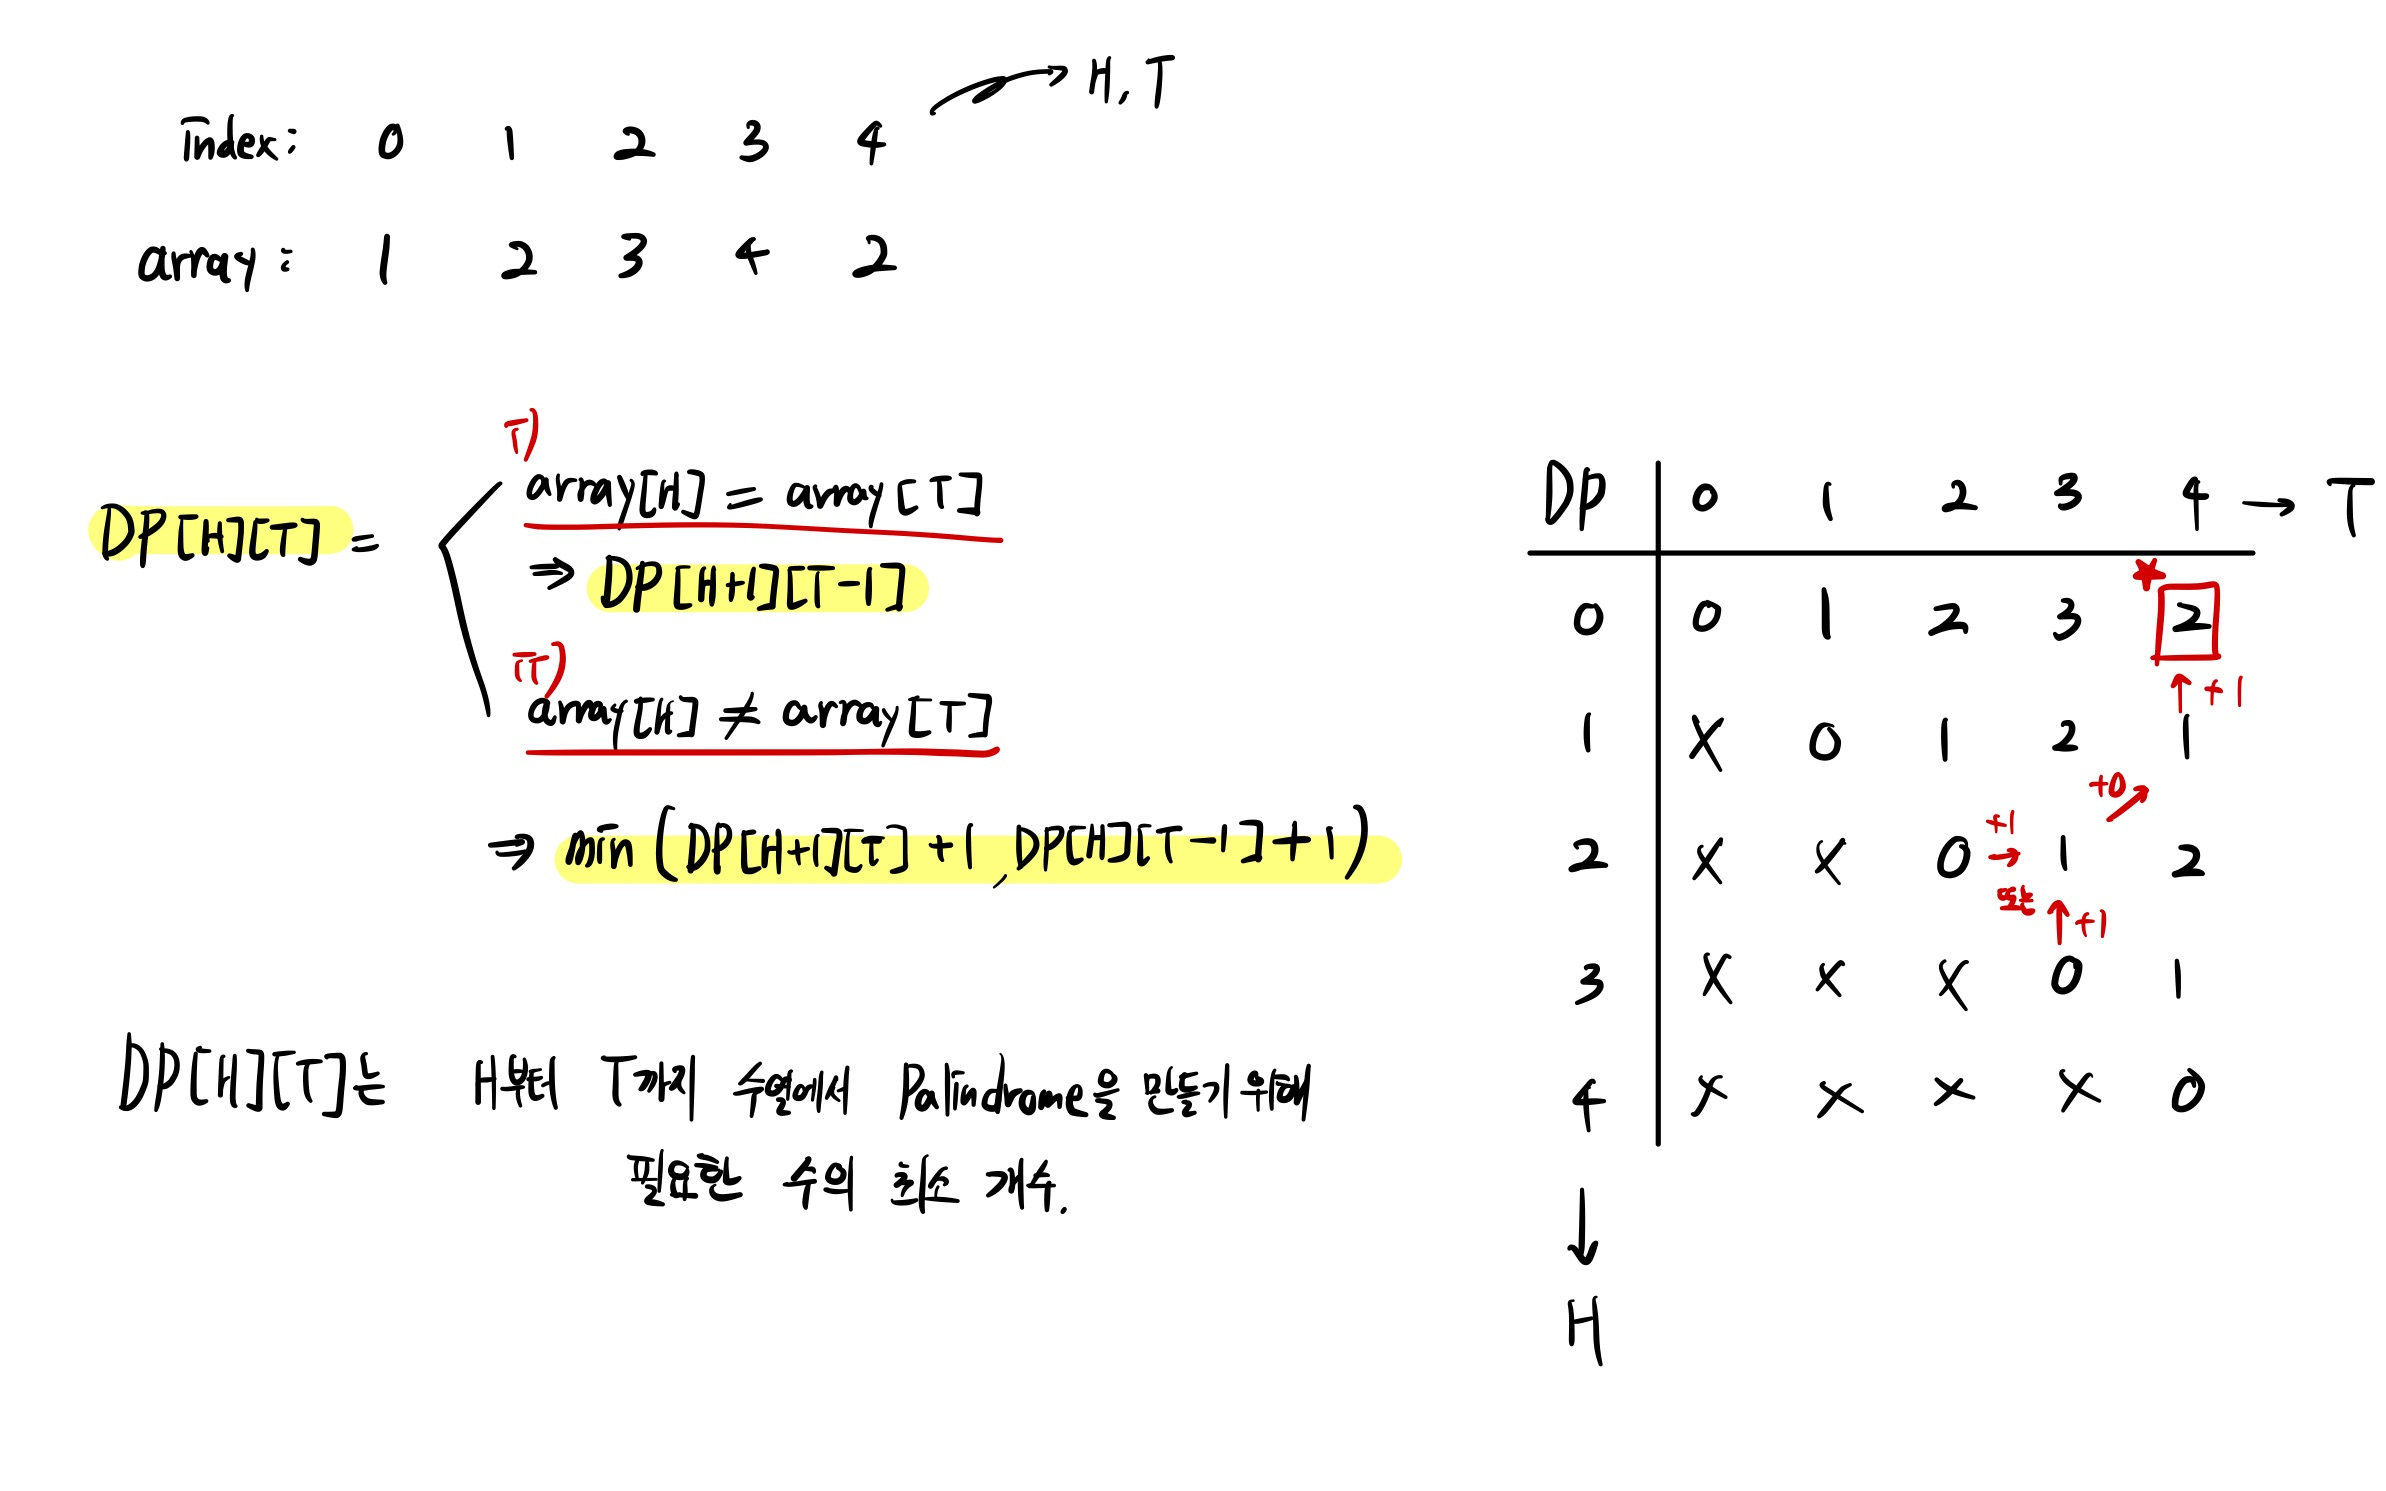 H, T
index: 0 1 2 3 4
array: 1 2 3 4 2
i)
array[H] = array[T]
DP[H][T] =
⇒ DP[H+1][T-1]
ii)
array[H] ≠ array[T]
⇒ min(DP[H+1][T]+1, DP[H][T-1]+1)
DP[H][T]는 H부터 T까지 수열에서 Palindrome을 만들기 위해
필요한 수의 최소 개수.
DP 0 1 2 3 4 → T
0 0 1 2 3 2
↑ +1
1 X 0 1 2 1
+0
+1
2 X X 0 → 1 2
또는
↑ +1
3 X X X 0 1
4 X X X X 0
↓
H